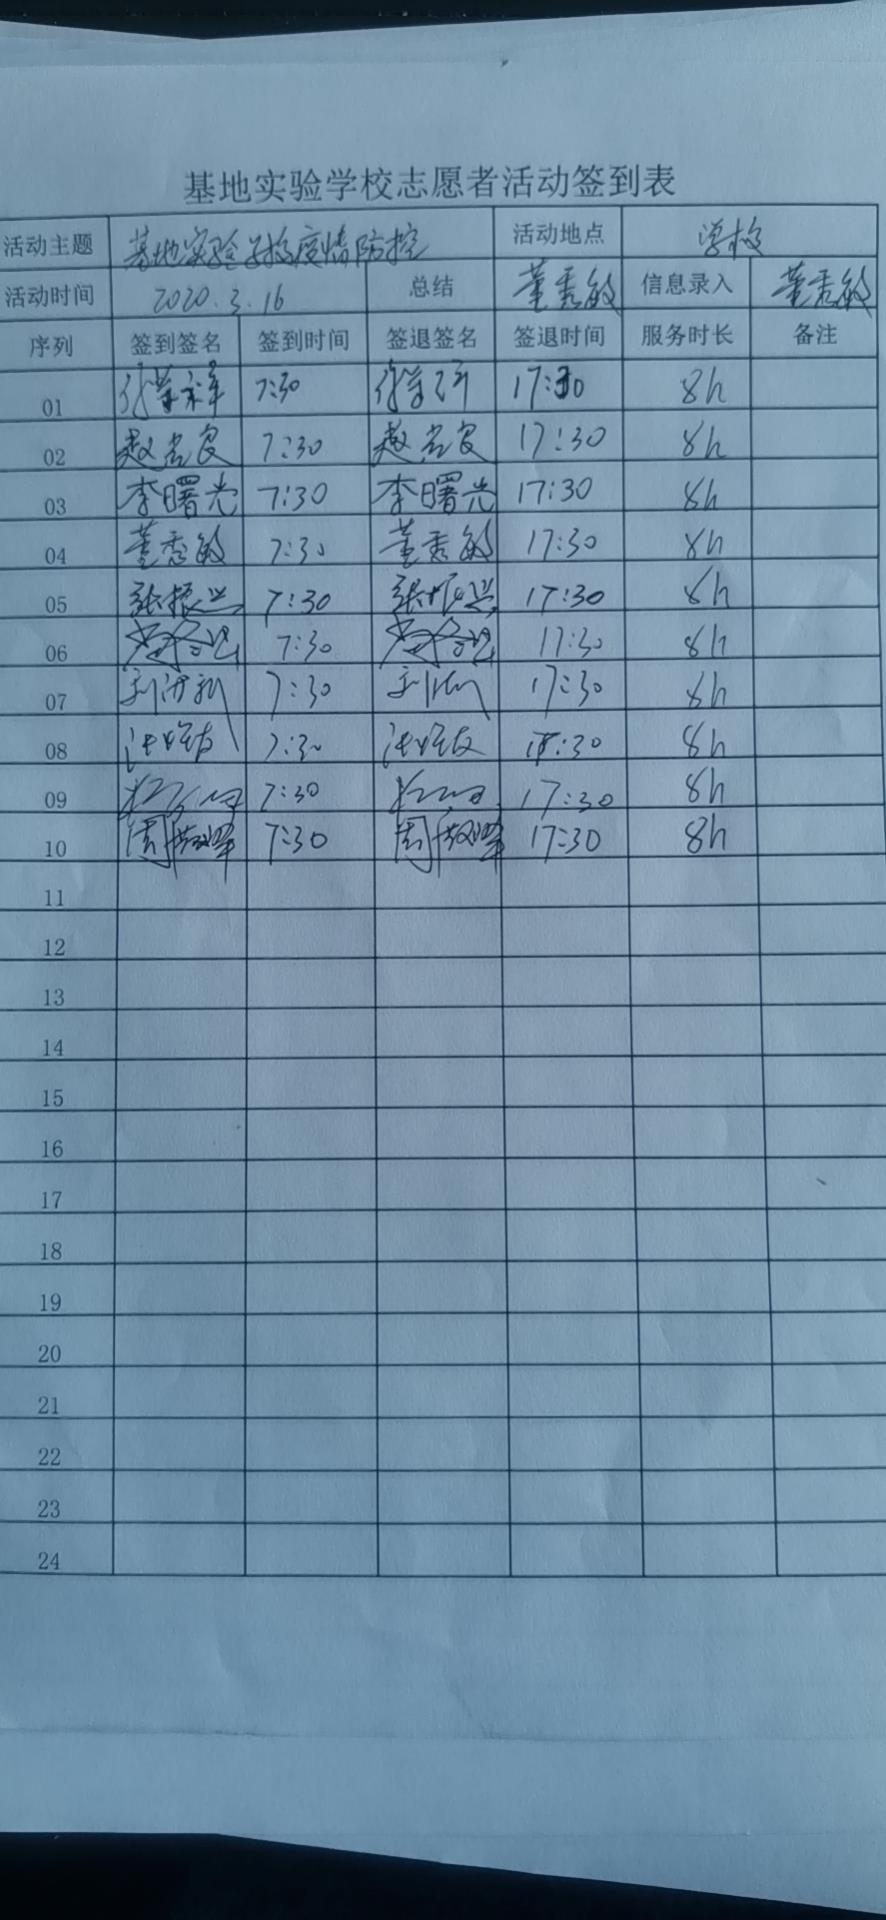 基地实验学校志愿者活动签到表
活动主题 基地实验学校疫情防控 活动地点 学校
活动时间 2020.3.16 总结 董秀敏 信息录入 董秀敏
序列 签到签名 签到时间 签退签名 签退时间 服务时长 备注
01 7:30 17:30 8h
02 7:30 17:30 8h
03 李曙光 7:30 李曙光 17:30 8h
04 董秀敏 7:30 董秀敏 17:30 8h
05 张振兴 7:30 张振兴 17:30 8h
06 7:30 17:30 8h
07 7:30 17:30 8h
08 7:30 17:30 8h
09 7:30 17:30 8h
10 7:30 17:30 8h
11
12
13
14
15
16
17
18
19
20
21
22
23
24